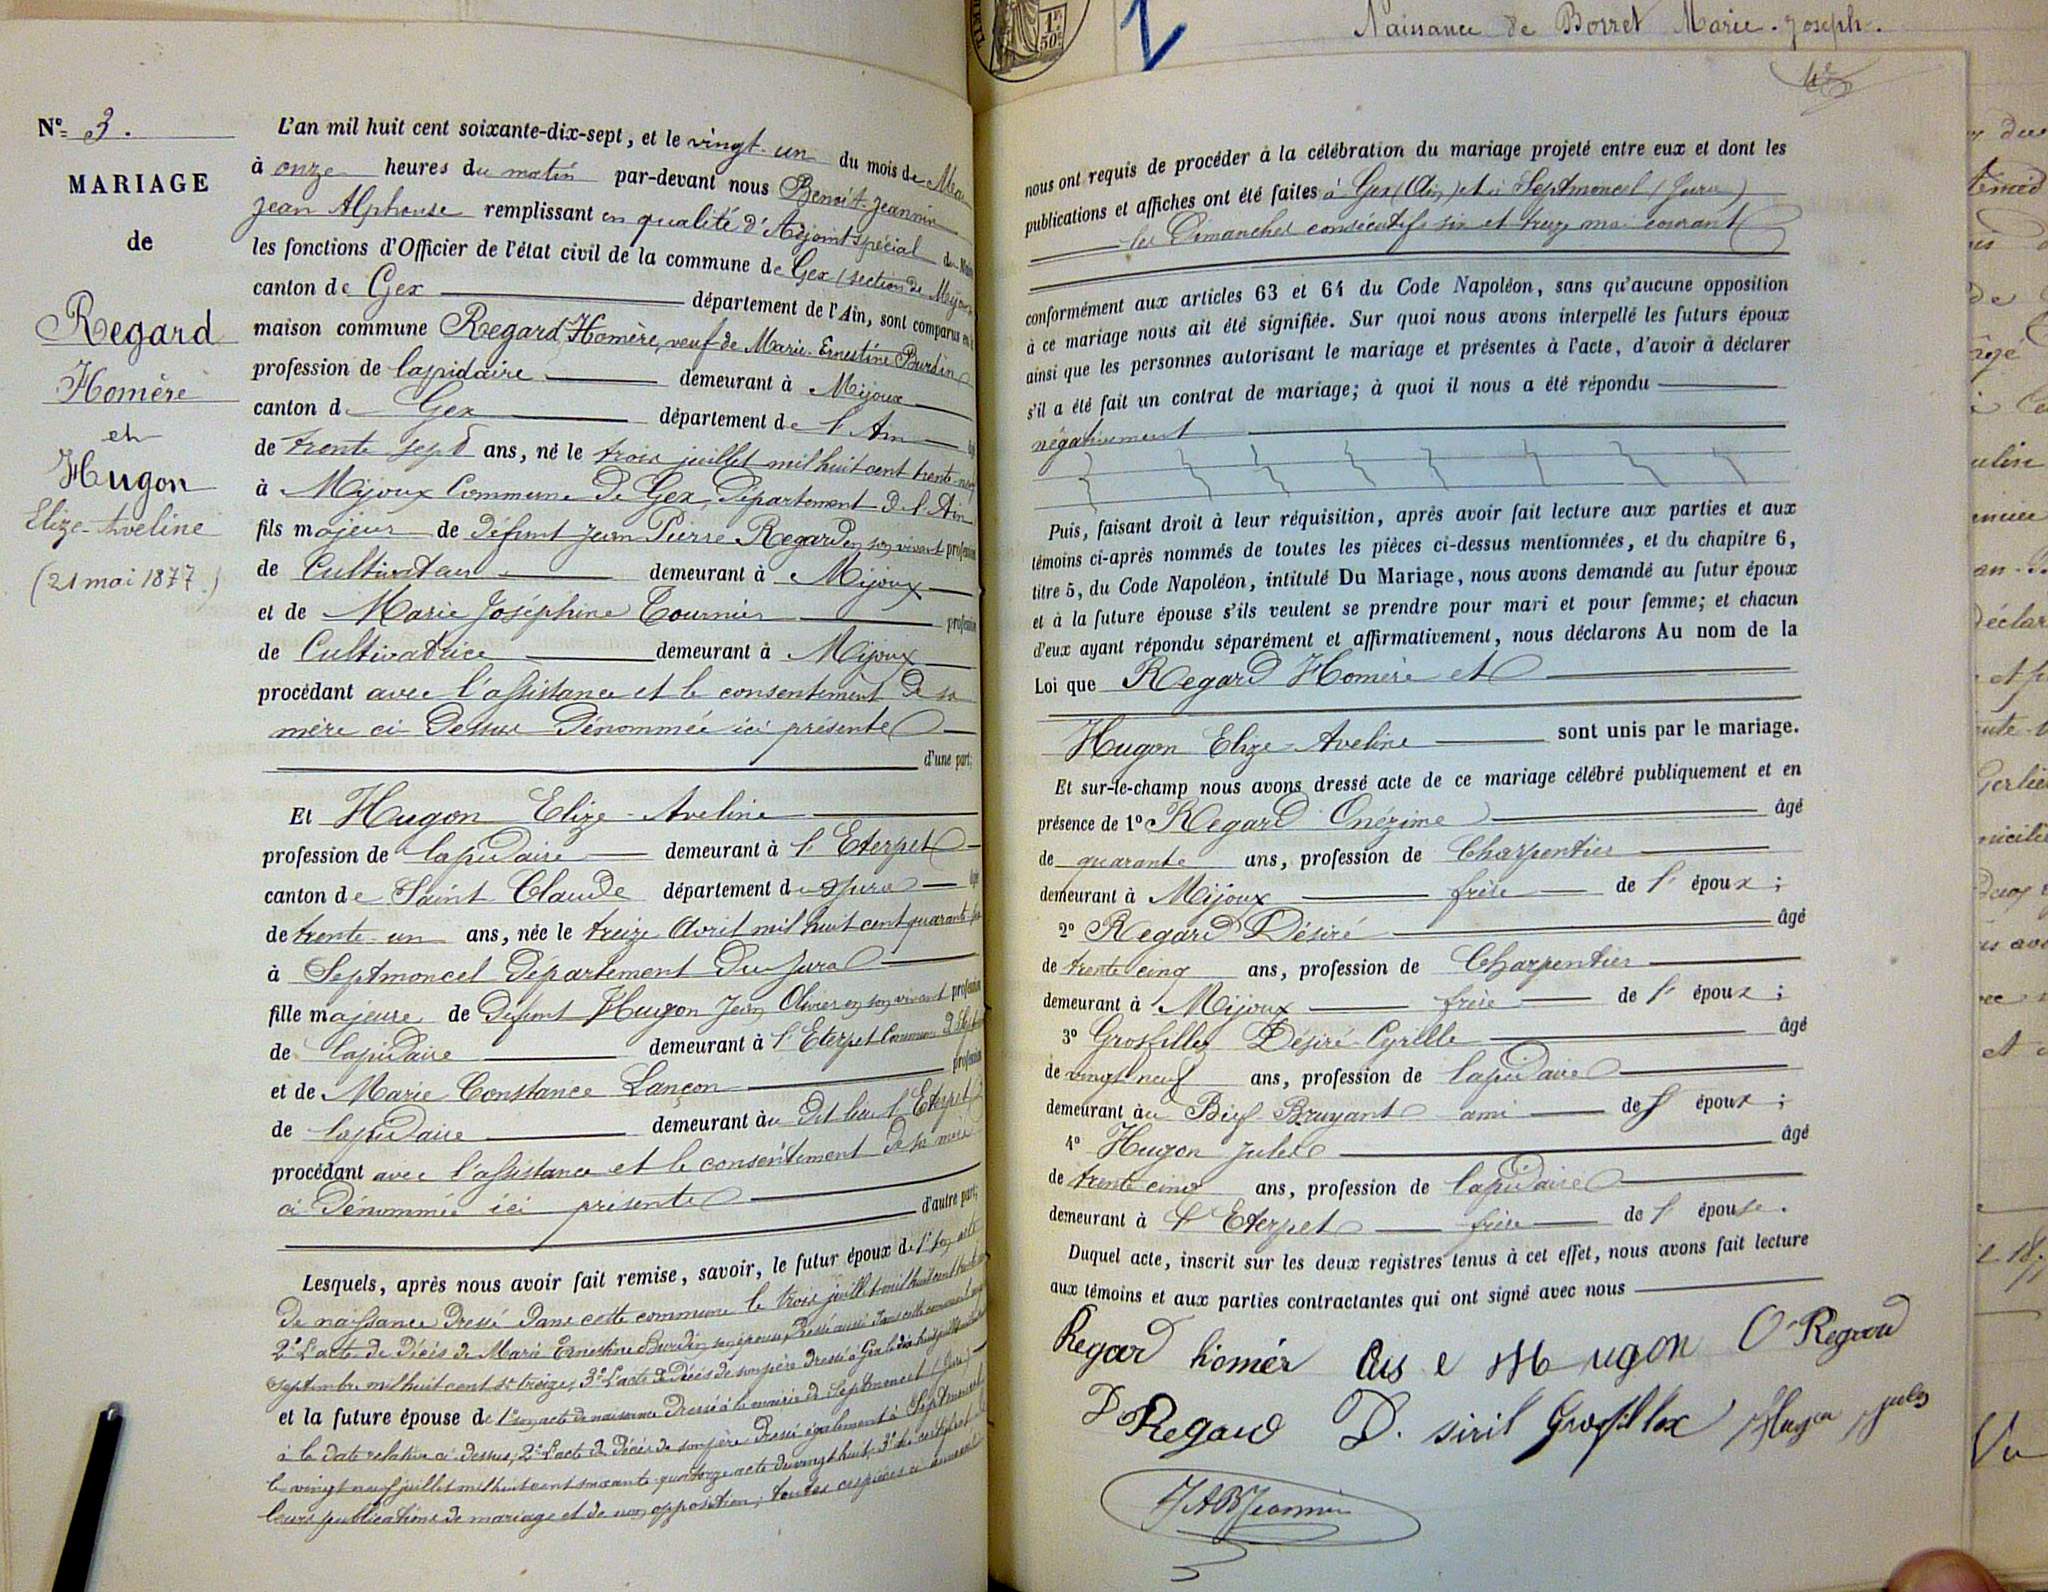 Nº 3.
MARIAGE
de
Regard
Homère
et
Hugon
Elize-Aveline
(21 mai 1877.)
L'an mil huit cent soixante-dix-sept, et le vingt-un du mois de Mai
à onze heures du matin par-devant nous Benoît-Jeannin
Jean Alphonse remplissant en qualité d'Adjoint spécial du
les fonctions d'Officier de l'état civil de la commune de Gex (section de Mijoux
canton de Gex département de l'Ain, sont comparus en
maison commune Regard Homère, veuf de Marie-Ernestine Burdin
profession de lapidaire demeurant à Mijoux
canton de Gex département de l'Ain
de trente sept ans, né le trois juillet mil huit cent trente-neuf
à Mijoux Commune de Gex, Département de l'Ain
fils majeur de défunt Jean Pierre Regard en son vivant profession
de Cultivateur demeurant à Mijoux
et de Marie Joséphine Tournier profession
de Cultivatrice demeurant à Mijoux
procédant avec l'assistance et le consentement de sa
mère ci-dessus dénommée ici présente
d'une part;
Et Hugon Elize-Aveline
profession de lapidaire demeurant à l'Eterpet
canton de Saint Claude département du Jura
de trente-un ans, née le treize Avril mil huit cent quarante-six
à Septmoncel Département du Jura
fille majeure de défunt Hugon Jean Olivier en son vivant profession
de lapidaire demeurant à l'Eterpet Commune de
et de Marie Constance Lançon profession
de lapidaire demeurant au dit lieu l'Eterpet
procédant avec l'assistance et le consentement de sa mère
ci dénommée ici présente
d'autre part;
Lesquels, après nous avoir fait remise, savoir, le futur époux de 1° son acte
de naissance dressé dans cette commune le trois juillet mil huit cent trente
2° L'acte de décès de Marie Ernestine Burdin son épouse, dressé aussi dans cette commune
septembre mil huit cent treize, 3° L'acte de décès de son père dressé à Gex le dix huit
et la future épouse de 1° son acte de naissance dressé à la mairie de Septmoncel (Jura)
à la date relative ci-dessus, 2° L'acte de décès de son père dressé également à Septmoncel
le vingt neuf juillet mil huit cent soixante-quatorze acte du vingt huit, 3° les certificats de
leurs publications de mariage et de non opposition; toutes ces pièces ci annexées
Naissance de Borret Marie-Joseph.
nous ont requis de procéder à la célébration du mariage projeté entre eux et dont les
publications et affiches ont été faites à Gex (Ain) et à Septmoncel (Jura)
les Dimanches consécutifs six et treize mai courant
conformément aux articles 63 et 64 du Code Napoléon, sans qu'aucune opposition
à ce mariage nous ait été signifiée. Sur quoi nous avons interpellé les futurs époux
ainsi que les personnes autorisant le mariage et présentes à l'acte, d'avoir à déclarer
s'il a été fait un contrat de mariage; à quoi il nous a été répondu
négativement
Puis, faisant droit à leur réquisition, après avoir fait lecture aux parties et aux
témoins ci-après nommés de toutes les pièces ci-dessus mentionnées, et du chapitre 6,
titre 5, du Code Napoléon, intitulé Du Mariage, nous avons demandé au futur époux
et à la future épouse s'ils veulent se prendre pour mari et pour femme; et chacun
d'eux ayant répondu séparément et affirmativement, nous déclarons Au nom de la
Loi que Regard Homère et
Hugon Elize-Aveline sont unis par le mariage.
Et sur-le-champ nous avons dressé acte de ce mariage célébré publiquement et en
présence de 1° Regard Onézime âgé
de quarante ans, profession de Charpentier
demeurant à Mijoux frère de l'époux;
2° Regard Désiré âgé
de trente cinq ans, profession de Charpentier
demeurant à Mijoux frère de l'époux;
3° Grosfillex Désiré-Cyrille âgé
de vingt neuf ans, profession de lapidaire
demeurant au Bief-Bruyant ami de l'époux;
4° Hugon Jules âgé
de trente cinq ans, profession de lapidaire
demeurant à l'Eterpet frère de l'épouse.
Duquel acte, inscrit sur les deux registres tenus à cet effet, nous avons fait lecture
aux témoins et aux parties contractantes qui ont signé avec nous
Regard homér Elis e Hugon O Regard
D Regard D. siril Grosfillex Hugon jules
JABJeannin